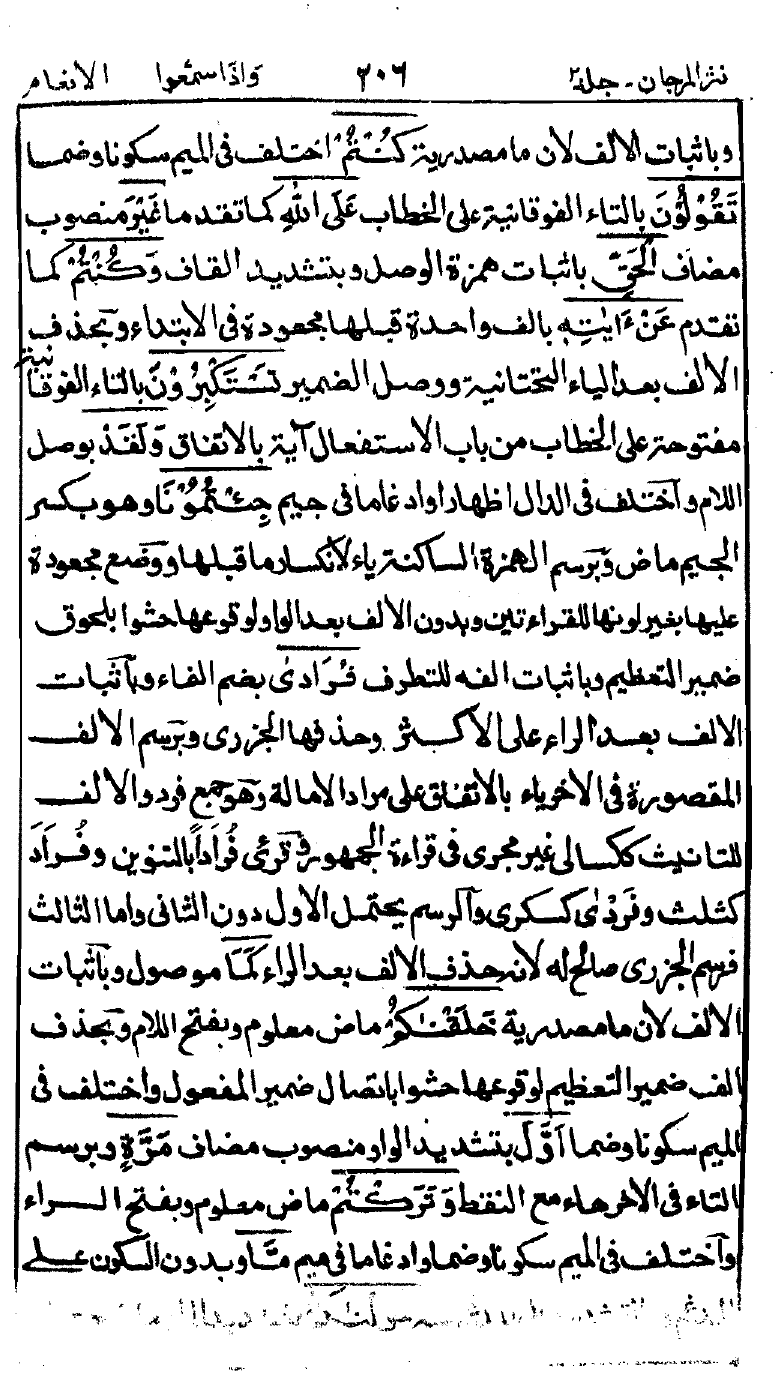 نثر المرجان - جلد٢ ٢٠٦ واذا سمعوا الانعام
وباثبات الالف لان ما مصدرية كُنْتُمْ اختلف فى الميم سكونا وضما
تَقُوْلُوْنَ بالتاء الفوقانية على الخطاب عَلَى اللّٰهِ كما تقدم ما غَيْرَ منصوب
مضاف الْحَقِّ باثبات همزة الوصل وبتشديد القاف وَكُنْتُمْ كما
تقدم عَنْ ءَايٰتِهٖ بالف واحدة قبلها مجعودة فى الابتداء وبحذف
الالف بعد الياء التحتانية ووصل الضمير تَسْتَكْبِرُوْنَ بالتاء الفوقانية
مفتوحة على الخطاب من باب الاستفعال آية بالاتفاق وَلَقَدْ بوصل
اللام واختلف فى الدال اظهارا وادغاما فى جيم جِئْتُمُوْنَا وهو بكسر
الجيم ماض وبرسم الهمزة الساكنة ياء لانكسار ما قبلها ووضع مجعودة
عليها بغير لونها للقراءتين وبدون الالف بعد الواو لوقوعها حشوا بلحوق
ضمير التعظيم وباثبات الفه للتطرف فُرَادٰى بضم الفاء وباثبات
الالف بعد الراء على الاكثر وحذفها الجزرى وبرسم الالف
المقصورة فى الاخر ياء بالاتفاق على مراد الامالة وهو جمع فرد والالف
للتانيث ككسالى غير مجرى فى قراءة الجمهور وقرئ فُرَادًا بالتنوين وفُرَادَ
كثلث وفَرْدٰى كسكرى والرسم يحتمل الاول دون الثانى واما الثالث
فرسم الجزرى صالح له لانه حذف الالف بعد الراء كَمَا موصول وباثبات
الالف لان ما مصدرية خَلَقْنٰكُمْ ماض معلوم وبفتح اللام وبحذف
الف ضمير التعظيم لوقوعها حشوا باتصال ضمير المفعول واختلف فى
الميم سكونا وضما اَوَّلَ بتشديد الواو منصوب مضاف مَرَّةٍ وبرسم
التاء فى الاخر هاء مع النقط وَتَرَكْتُمْ ماض معلوم وبفتح الراء
واختلف فى الميم سكونا وضما وادغاما فى ميم مَّا وبدون السكون على